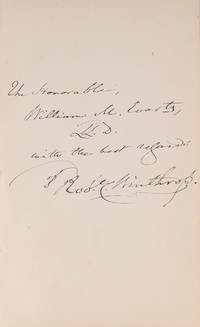 The Honorable,
William M. Evarts,
LL.D.
with the best regards
Robt C Winthrop.